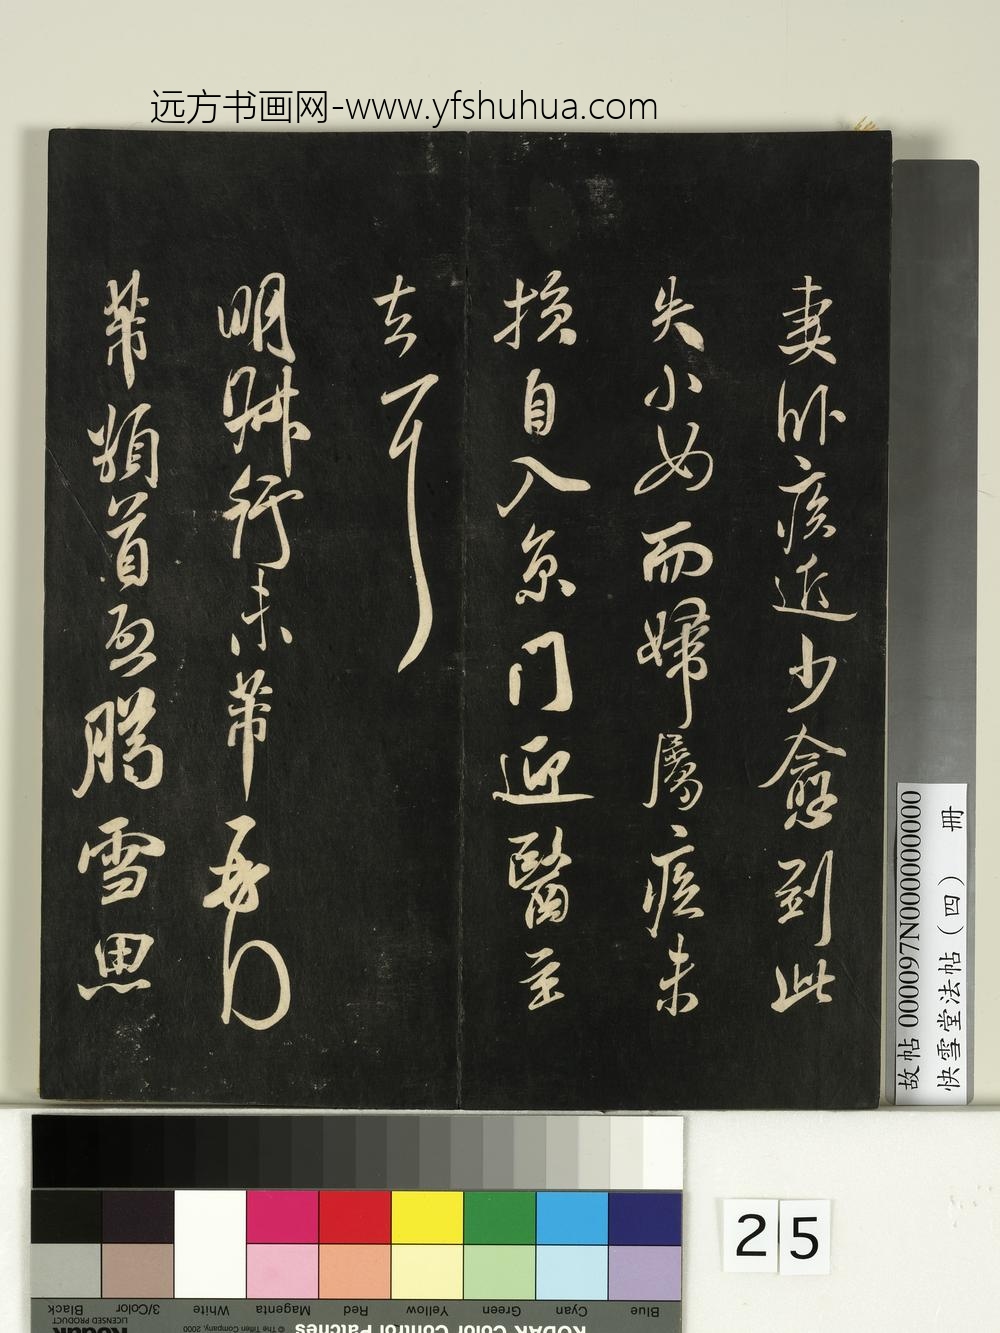 远方书画网-www.yfshuhua.com
妻卧疾近少愈到此
失小女而婦屬疾未
損自入京門迎醫至
去耳
明叔行芾
芾頓首臘雪思
故帖 000097N000000000
快雪堂法帖（四） 冊
25
Blue Cyan Green Yellow Red Magenta White 3/Color Black
KODAK Color Control Patches
© The Tiffen Company, 2000
Kodak
LICENSED PRODUCT